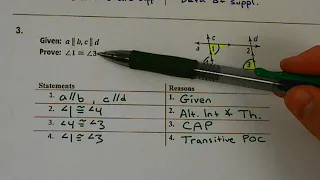 3.
Given: a ∥ b, c ∥ d
Prove: ∠1 ≅ ∠3
c d
a 1 2
3
Statements Reasons
1. a//b, c//d 1. Given
2. ∠1 ≅ ∠4 2. Alt. Int ∢ Th.
3. ∠4 ≅ ∠3 3. CAP
4. ∠1 ≅ ∠3 4. Transitive POC